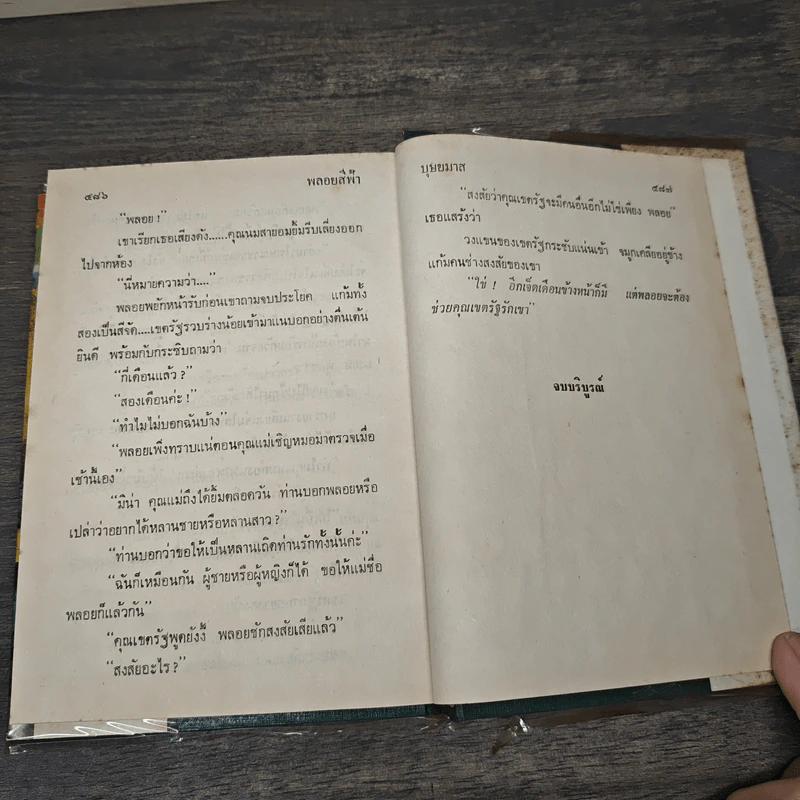 ๔๘๖
พลอยสีฟ้า
“พลอย !”
เขาเรียกเธอเสียงดัง......คุณนมสายอมยิ้มรีบเลี่ยงออก
ไปจากห้อง
“นี่หมายความว่า....”
พลอยพยักหน้ารับก่อนเขาถามจบประโยค แก้มทั้ง
สองเป็นสีจัด....เขตรัฐรวบร่างน้อยเข้ามาแนบอกอย่างตื่นเต้น
ยินดี พร้อมกับกระซิบถามว่า
“กี่เดือนแล้ว ?”
“สองเดือนค่ะ !”
“ทำไมไม่บอกฉันบ้าง”
“พลอยเพิ่งทราบแน่ตอนคุณแม่เชิญหมอมาตรวจเมื่อ
เช้านี้เอง”
“มิน่า คุณแม่ถึงได้ยิ้มตลอดวัน ท่านบอกพลอยหรือ
เปล่าว่าอยากได้หลานชายหรือหลานสาว ?”
“ท่านบอกว่าขอให้เป็นหลานเถิดท่านรักทั้งนั้นค่ะ”
“ฉันก็เหมือนกัน ผู้ชายหรือผู้หญิงก็ได้ ขอให้แม่ชื่อ
พลอยก็แล้วกัน”
“คุณเขตรัฐพูดยังงี้ พลอยชักสงสัยเสียแล้ว”
“สงสัยอะไร ?”
บุษยมาส
๔๘๗
“สงสัยว่าคุณเขตรัฐจะมีคนอื่นอีกไม่ใช่เพียง พลอย”
เธอแสร้งว่า
วงแขนของเขตรัฐกระชับแน่นเข้า จมูกเคลียอยู่ข้าง
แก้มคนช่างสงสัยของเขา
“ใช่ ! อีกเจ็ดเดือนข้างหน้าก็มี แต่พลอยจะต้อง
ช่วยคุณเขตรัฐรักเขา”
จบบริบูรณ์